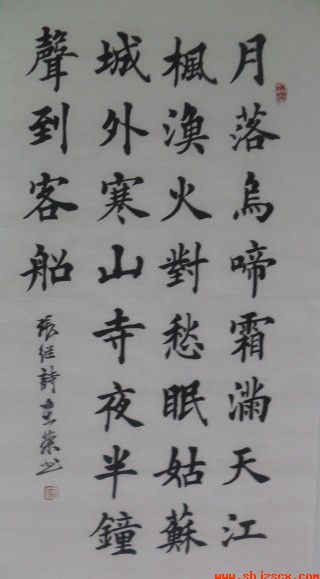 月落烏啼霜滿天江
楓漁火對愁眠姑蘇
城外寒山寺夜半鐘
聲到客船
張继詩 書
www.shjzscx.com